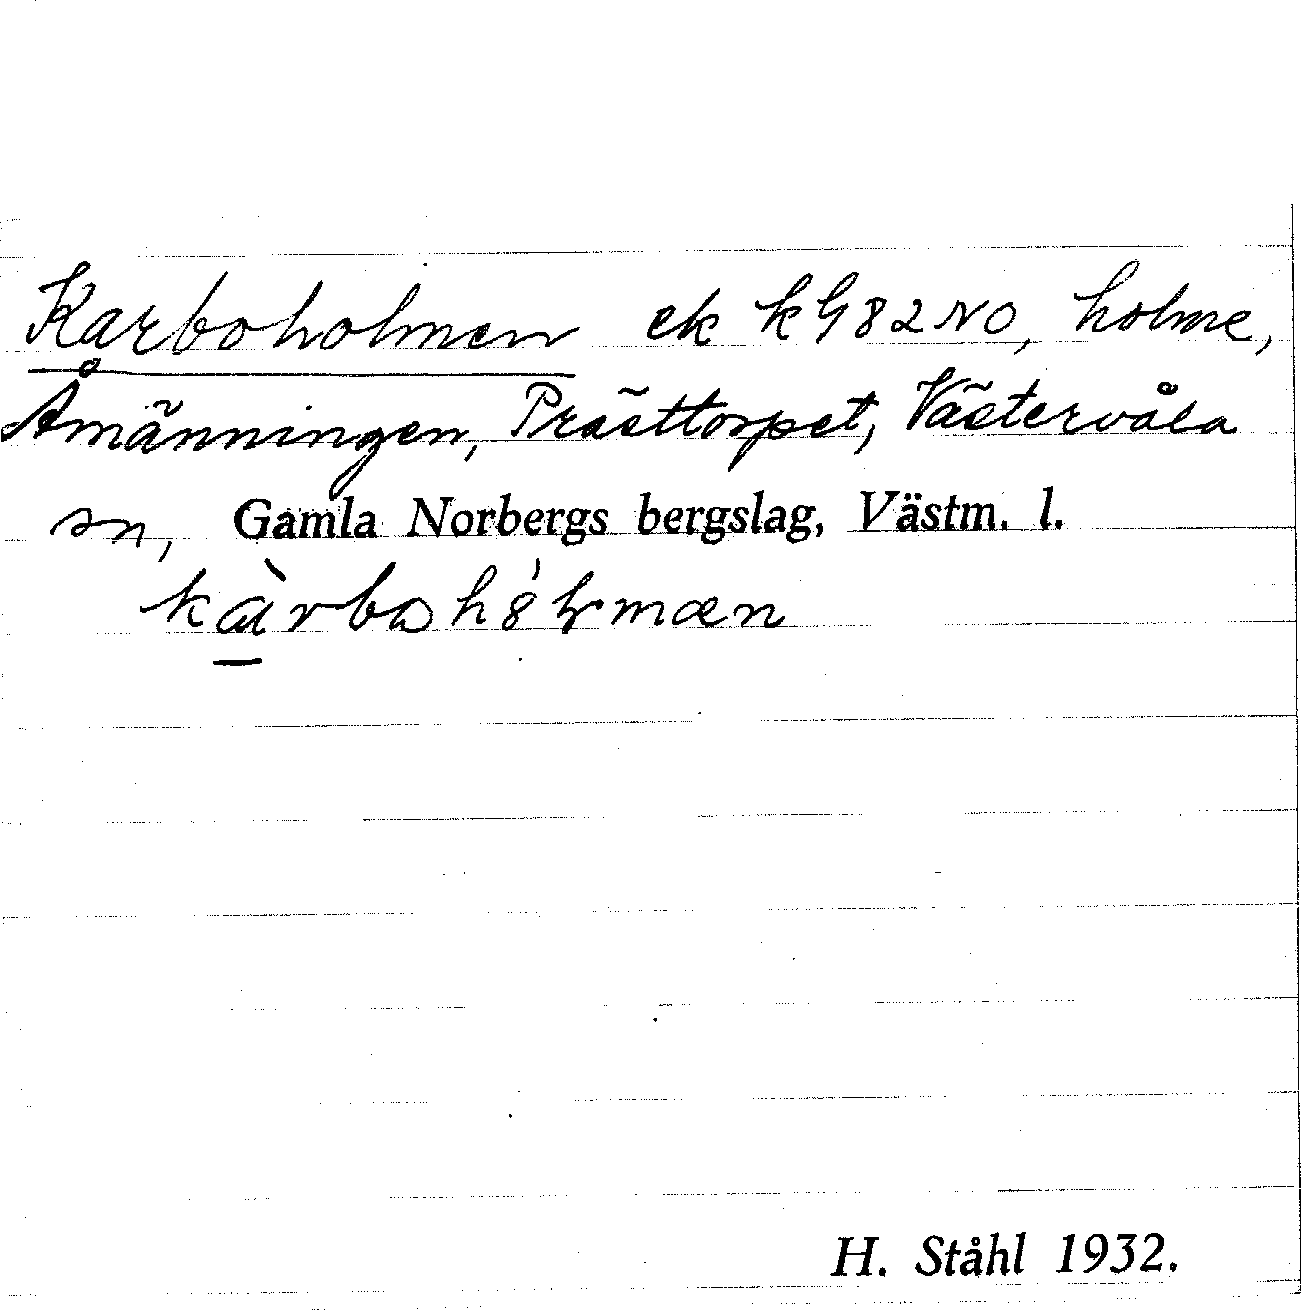 Karboholmen ek k G 82 NO, holme,
Åmänningen, Prästtorpet, Västervåla
sn, Gamla Norbergs bergslag, Västm. l.
H. Ståhl 1932.